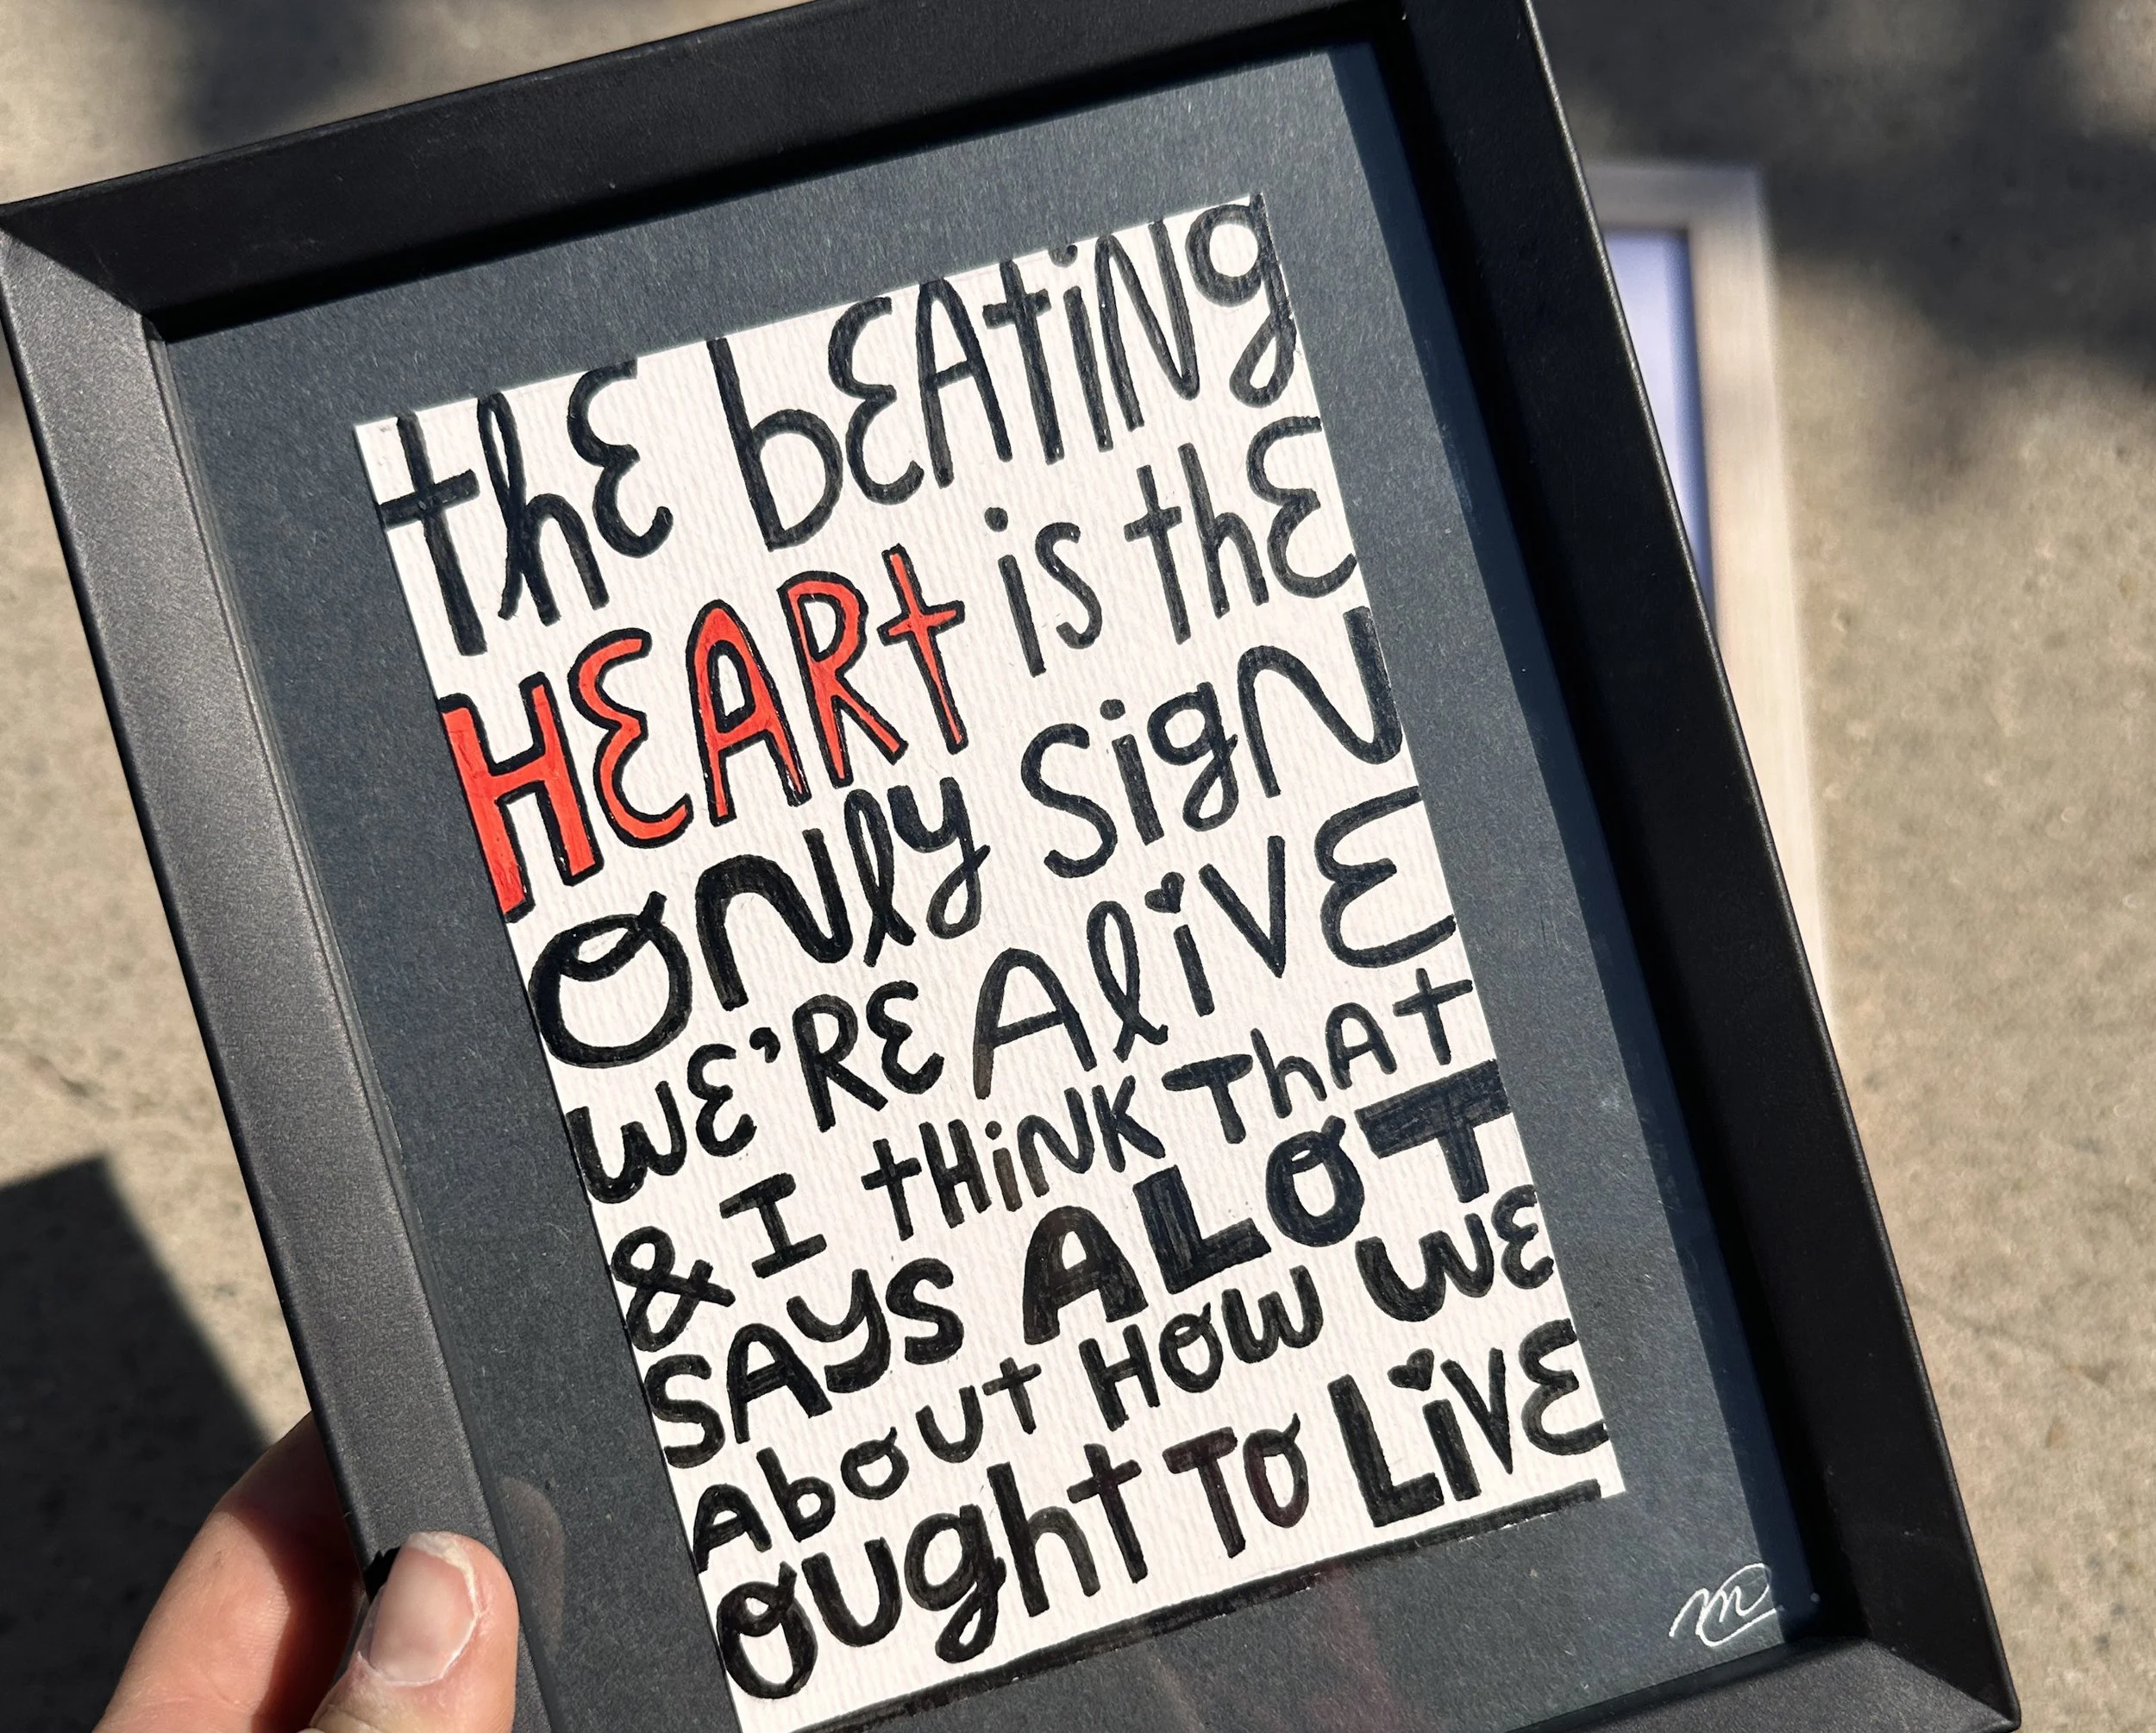 thE bEAtiNg
HEARt is thE
ONly SigN
WE'RE AliVE
& I tHiNK ThAt
SAYS A LOT
AbOUt HOW WE
OUght TO LiVE